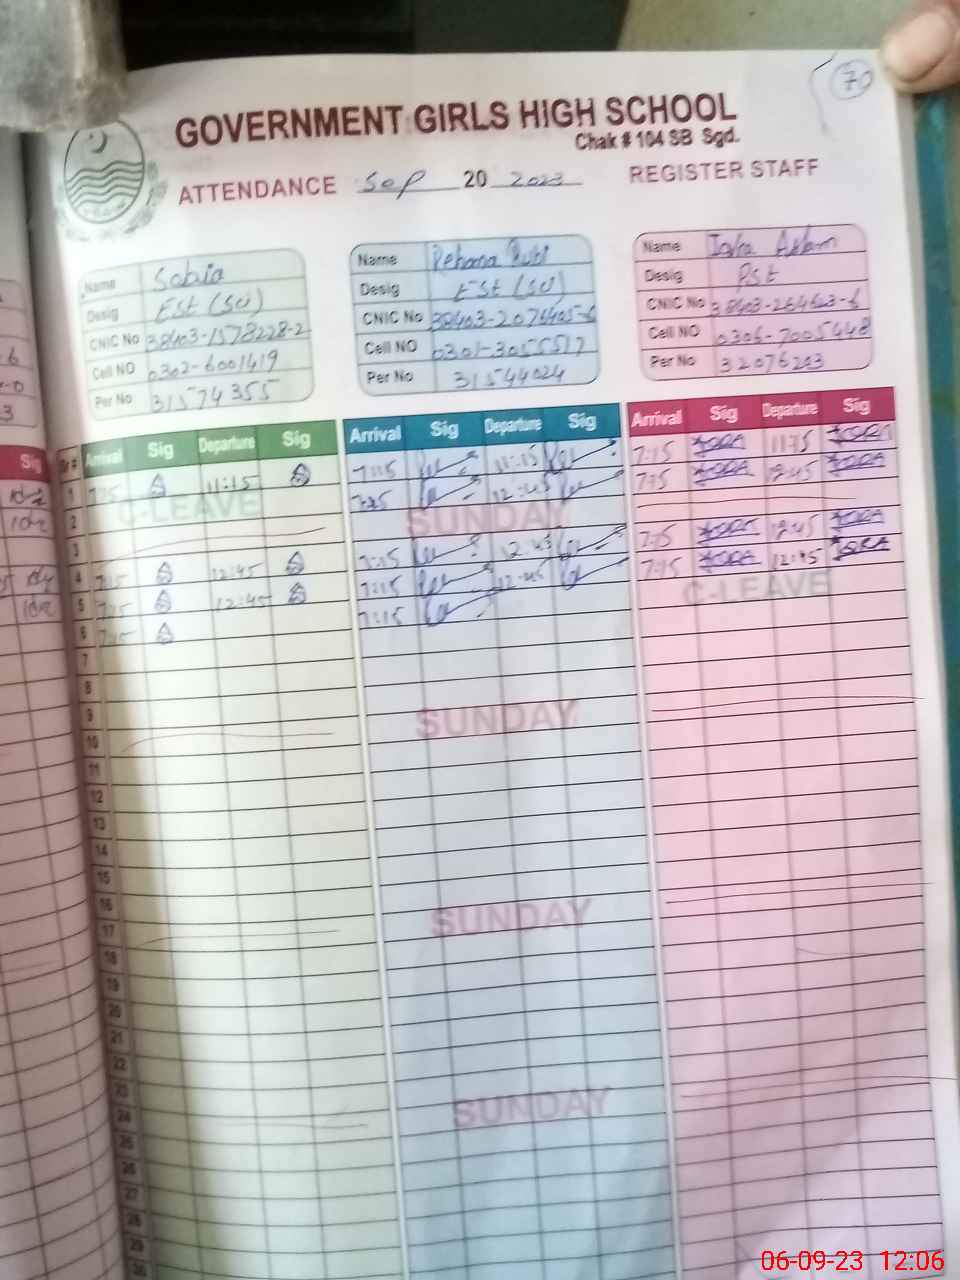 70
GOVERNMENT GIRLS HIGH SCHOOL
Chak # 104 SB Sgd.
ATTENDANCE Sep 20 2023 REGISTER STAFF
Name Sobia
Desig EST (SU)
CNIC No 38403-1578228-2
Cell NO 0302-6001419
Per No 31574355
Name Rehana
Desig EST (SU)
CNIC No 38403-2076405-6
Cell NO 0301-3055517
Per No 31544024
Name Iqra Aslam
Desig PST
CNIC No 38403-264603-6
Cell NO 0306-7005448
Per No 32076203
Sr # Arrival Sig Departure Sig Arrival Sig Departure Sig Arrival Sig Departure Sig
1 7:15 11:15 7:15 11:15 7:15 IQRA 11:15 IQRA
2 C-LEAVE 7:15 12:45 7:15 IQRA 12:45 IQRA
3 SUNDAY
4 7:15 12:45 7:15 12:45 7:15 IQRA 12:45 IQRA
5 7:15 12:45 7:15 12:45 7:15 IQRA 12:45 IQRA
6 7:15 7:15 C-LEAVE
7
8
9
10 SUNDAY
11
12
13
14
15
16
17 SUNDAY
18
19
20
21
22
23
24 SUNDAY
25
26
27
28
29
30
06-09-23 12:06